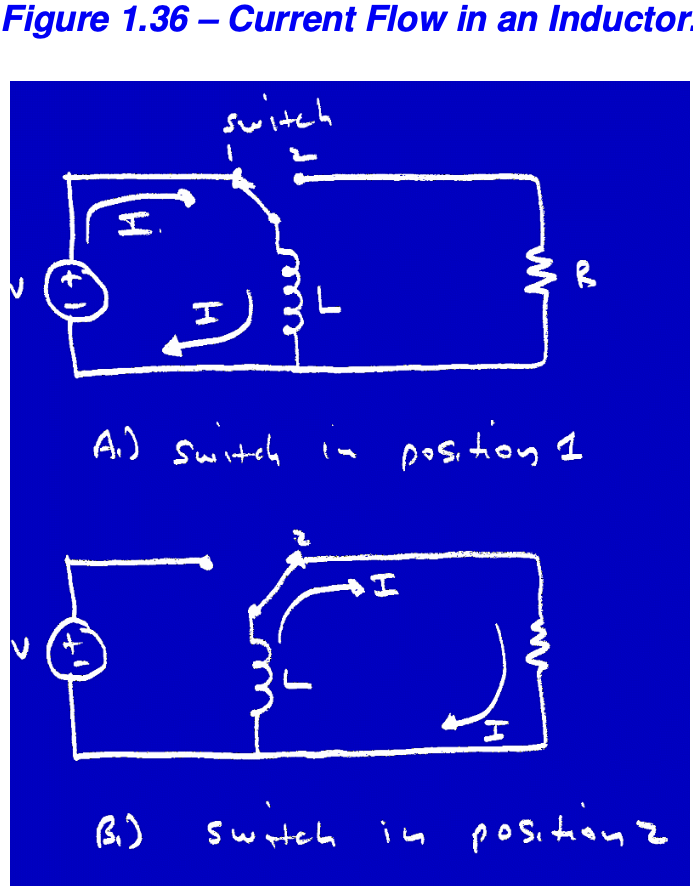 Figure 1.36 – Current Flow in an Inductor.
switch
1 2
I.
V + - I L R
A.) switch in position 1
2
I
V + - L
I
B.) switch in position 2